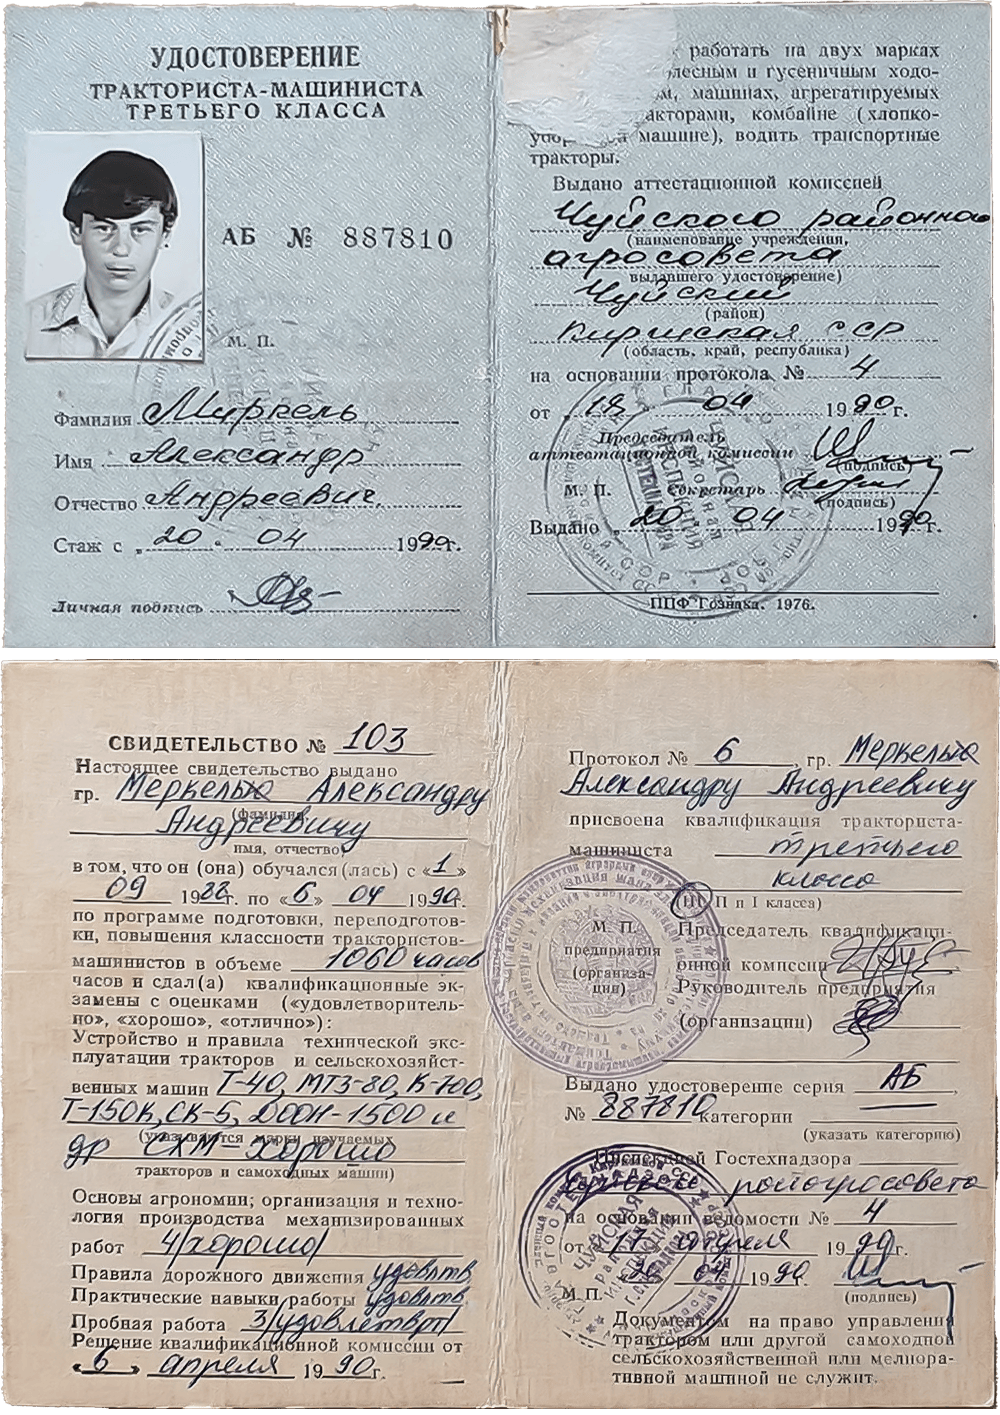 УДОСТОВЕРЕНИЕ
ТРАКТОРИСТА-МАШИНИСТА
ТРЕТЬЕГО КЛАССА
АБ № 887810
М. П.
Фамилия Миркель
Имя Александр
Отчество Андреевич
Стаж с „20" 04 1990г.
Личная подпись
работать на двух марках
лесным и гусеничным ходо-
м, машинах, агрегатируемых
акторами, комбайне (хлопко-
убор й машине), водить транспортные
тракторы.
Выдано аттестационной комиссией
Чуйского районного
(наименование учреждения,
агросовета
выдавшего удостоверение)
Чуйский
(район)
Киргизская ССР
(область, край, республика)
на основании протокола № 4
от „18" 04 1990г.
Председатель
аттестационной комиссии
(подпись)
М. П. Секретарь
(подпись)
Выдано „20" 04 1990г.
ППФ Гознака. 1976.
СВИДЕТЕЛЬСТВО № 103
Настоящее свидетельство выдано
гр. Меркелью Александру
(фамилия,
Андреевичу
имя, отчество)
в том, что он (она) обучался (лась) с «1»
09 1988г. по «6» 04 1990г.
по программе подготовки, переподготов-
ки, повышения классности трактористов-
машинистов в объеме 1060 часов
часов и сдал(а) квалификационные эк-
замены с оценками («удовлетворитель-
но», «хорошо», «отлично»):
Устройство и правила технической экс-
плуатации тракторов и сельскохозяйст-
венных машин Т-40, МТЗ-80, К-700,
Т-150К, СК-5, ДООН-1500 и
(указываются марки изучаемых
др СХМ-хорошо
тракторов и самоходных машин)
Основы агрономии; организация и техно-
логия производства механизированных
работ 4/хорошо/
Правила дорожного движения удовлтв
Практические навыки работы удовлтв.
Пробная работа 3/удовлетврт/
Решение квалификационной комиссии от
«6» апреля 1990г.
Протокол № 6, гр. Меркелью
Александру Андреевичу
присвоена квалификация тракториста-
машиниста третьего
класса
(III, II и I класса)
М. П.
предприятия
(организа-
ции)
Председатель квалификаци-
онной комиссии
Руководитель предприятия
(организации)
Выдано удостоверение серия АБ,
№ 887810 категории
(указать категорию)
Инспекцией Гостехнадзора
райагросовета
на основании ведомости № 4
от 17 апреля 1990г.
20 04 1990
М. П.
(подпись)
Документом на право управления
трактором или другой самоходной
сельскохозяйственной или мелиора-
тивной машиной не служит.